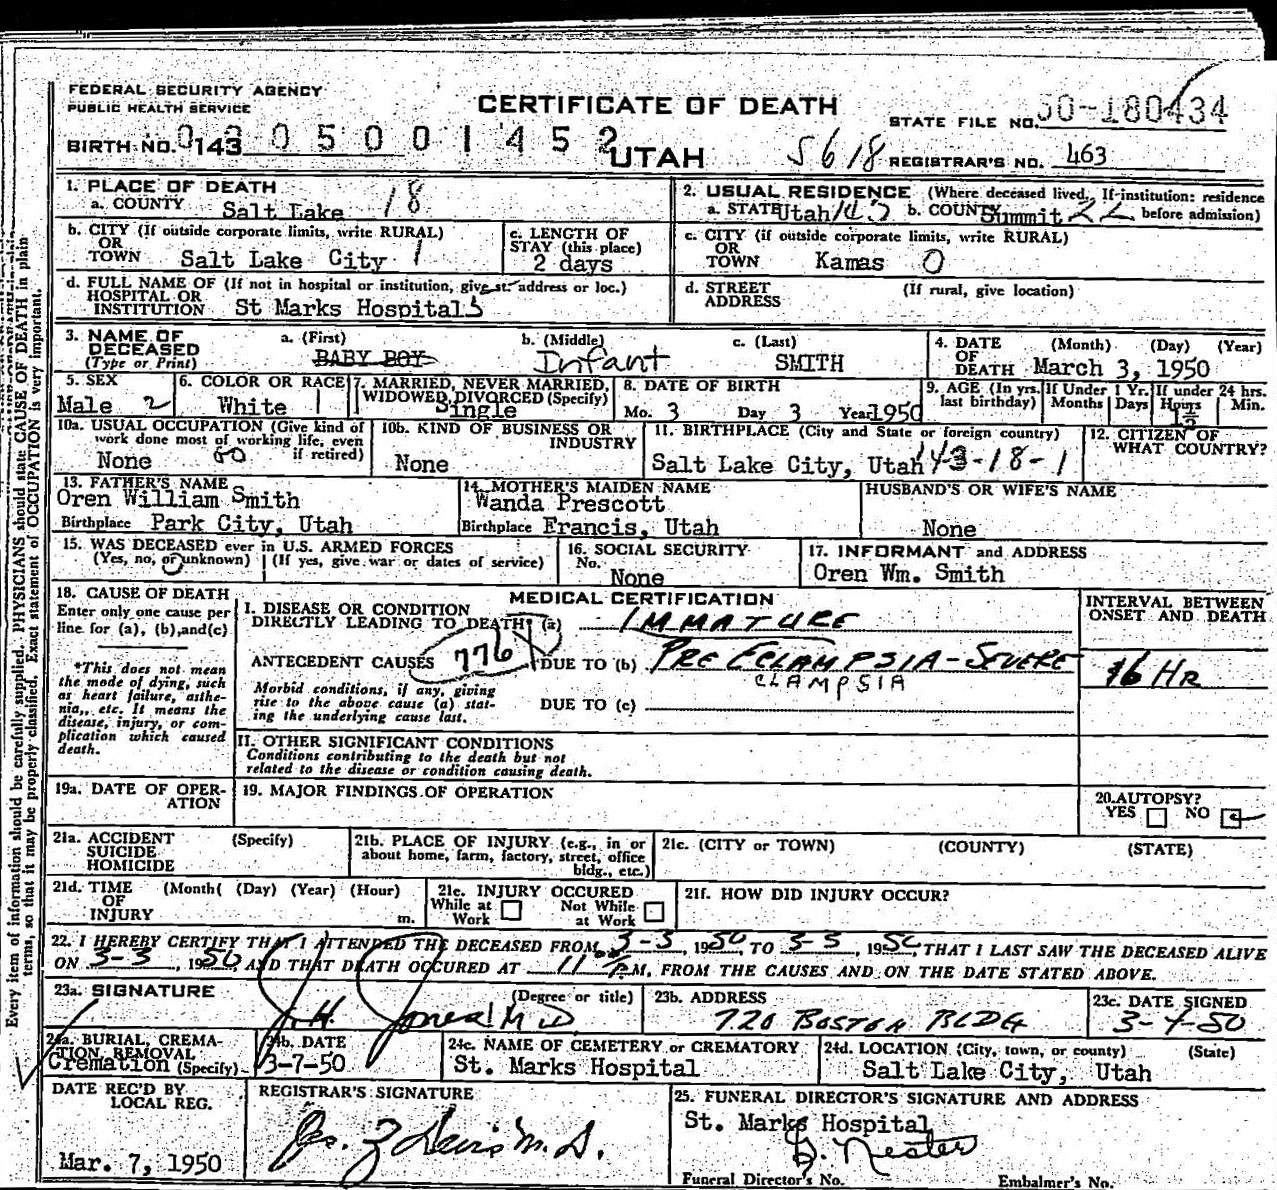 FEDERAL SECURITY AGENCY
PUBLIC HEALTH SERVICE
CERTIFICATE OF DEATH
STATE FILE NO. 50-180434
BIRTH NO. 143 05001452
UTAH
5618 REGISTRAR'S NO. 463
1. PLACE OF DEATH
a. COUNTY Salt Lake 18
2. USUAL RESIDENCE (Where deceased lived. If institution: residence before admission)
a. STATE Utah 143 b. COUNTY Summit 22
b. CITY (If outside corporate limits, write RURAL)
OR
TOWN Salt Lake City 1
c. LENGTH OF
STAY (this place)
2 days
c. CITY (if outside corporate limits, write RURAL)
OR
TOWN Kamas 0
d. FULL NAME OF (If not in hospital or institution, give st. address or loc.)
HOSPITAL OR
INSTITUTION St Marks Hospital
d. STREET (If rural, give location)
ADDRESS
3. NAME OF
DECEASED
(Type or Print)
a. (First) b. (Middle) c. (Last)
BABY BOY Infant SMITH
4. DATE (Month) (Day) (Year)
OF
DEATH March 3, 1950
5. SEX
Male 2
6. COLOR OR RACE
White 1
7. MARRIED, NEVER MARRIED,
WIDOWED, DIVORCED (Specify)
Single
8. DATE OF BIRTH
Mo. 3 Day 3 Year 1950
9. AGE (In yrs. last birthday)
If Under 1 Yr. Months Days
If under 24 hrs. Hours Min.
10a. USUAL OCCUPATION (Give kind of
work done most of working life, even
if retired)
None
10b. KIND OF BUSINESS OR
INDUSTRY
None
11. BIRTHPLACE (City and State or foreign country)
Salt Lake City, Utah 143-18-1
12. CITIZEN OF
WHAT COUNTRY?
13. FATHER'S NAME
Oren William Smith
Birthplace Park City, Utah
14. MOTHER'S MAIDEN NAME
Wanda Prescott
Birthplace Francis, Utah
HUSBAND'S OR WIFE'S NAME
None
15. WAS DECEASED ever in U.S. ARMED FORCES
(Yes, no, or unknown) (If yes, give war or dates of service)
16. SOCIAL SECURITY
No. None
17. INFORMANT and ADDRESS
Oren Wm. Smith
18. CAUSE OF DEATH
Enter only one cause per
line for (a), (b), and (c)
*This does not mean
the mode of dying, such
as heart failure, asthe-
nia, etc. It means the
disease, injury, or com-
plication which caused
death.
MEDICAL CERTIFICATION
INTERVAL BETWEEN
ONSET AND DEATH
I. DISEASE OR CONDITION
DIRECTLY LEADING TO DEATH* (a) IMMATURE
ANTECEDENT CAUSES 776 DUE TO (b) PRE ECLAMPSIA - SEVERE
CLAMPSIA
16 HR
Morbid conditions, if any, giving
rise to the above cause (a) stat-
ing the underlying cause last.
DUE TO (c)
II. OTHER SIGNIFICANT CONDITIONS
Conditions contributing to the death but not
related to the disease or condition causing death.
19a. DATE OF OPER-
ATION
19. MAJOR FINDINGS OF OPERATION
20. AUTOPSY?
YES NO
21a. ACCIDENT (Specify)
SUICIDE
HOMICIDE
21b. PLACE OF INJURY (e.g., in or
about home, farm, factory, street, office
bldg., etc.)
21c. (CITY or TOWN) (COUNTY) (STATE)
21d. TIME (Month( (Day) (Year) (Hour)
OF
INJURY m.
21e. INJURY OCCURED
While at Work Not While at Work
21f. HOW DID INJURY OCCUR?
22. I HEREBY CERTIFY THAT I ATTENDED THE DECEASED FROM 3-3, 1950, TO 3-3, 1950, THAT I LAST SAW THE DECEASED ALIVE
ON 3-3, 1950, AND THAT DEATH OCCURED AT 11 P.M, FROM THE CAUSES AND ON THE DATE STATED ABOVE.
23a. SIGNATURE (Degree or title)
J. H. Jones M D.
23b. ADDRESS
720 BOSTON BLDG
23c. DATE SIGNED
3-7-50
24a. BURIAL, CREMA-
TION, REMOVAL
Cremation (Specify)
24b. DATE
3-7-50
24c. NAME OF CEMETERY or CREMATORY
St. Marks Hospital
24d. LOCATION (City, town, or county) (State)
Salt Lake City, Utah
DATE REC'D BY
LOCAL REG.
Mar. 7, 1950
REGISTRAR'S SIGNATURE
25. FUNERAL DIRECTOR'S SIGNATURE AND ADDRESS
St. Marks Hospital
Funeral Director's No. Embalmer's No.
Every item of information should be carefully supplied. PHYSICIANS should state CAUSE OF DEATH in plain
terms, so that it may be properly classified. Exact statement of OCCUPATION is very important.